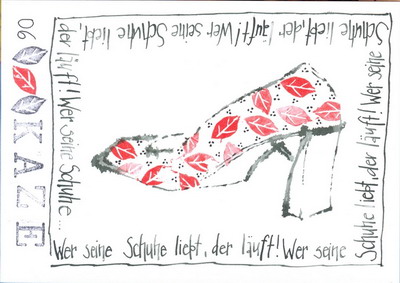 06 KAZE
Wer seine Schuhe liebt, der läuft! Wer seine
Schuhe liebt, der läuft! Wer seine
Schuhe liebt, der läuft! Wer seine Schuhe liebt,
der läuft! Wer seine Schuhe...